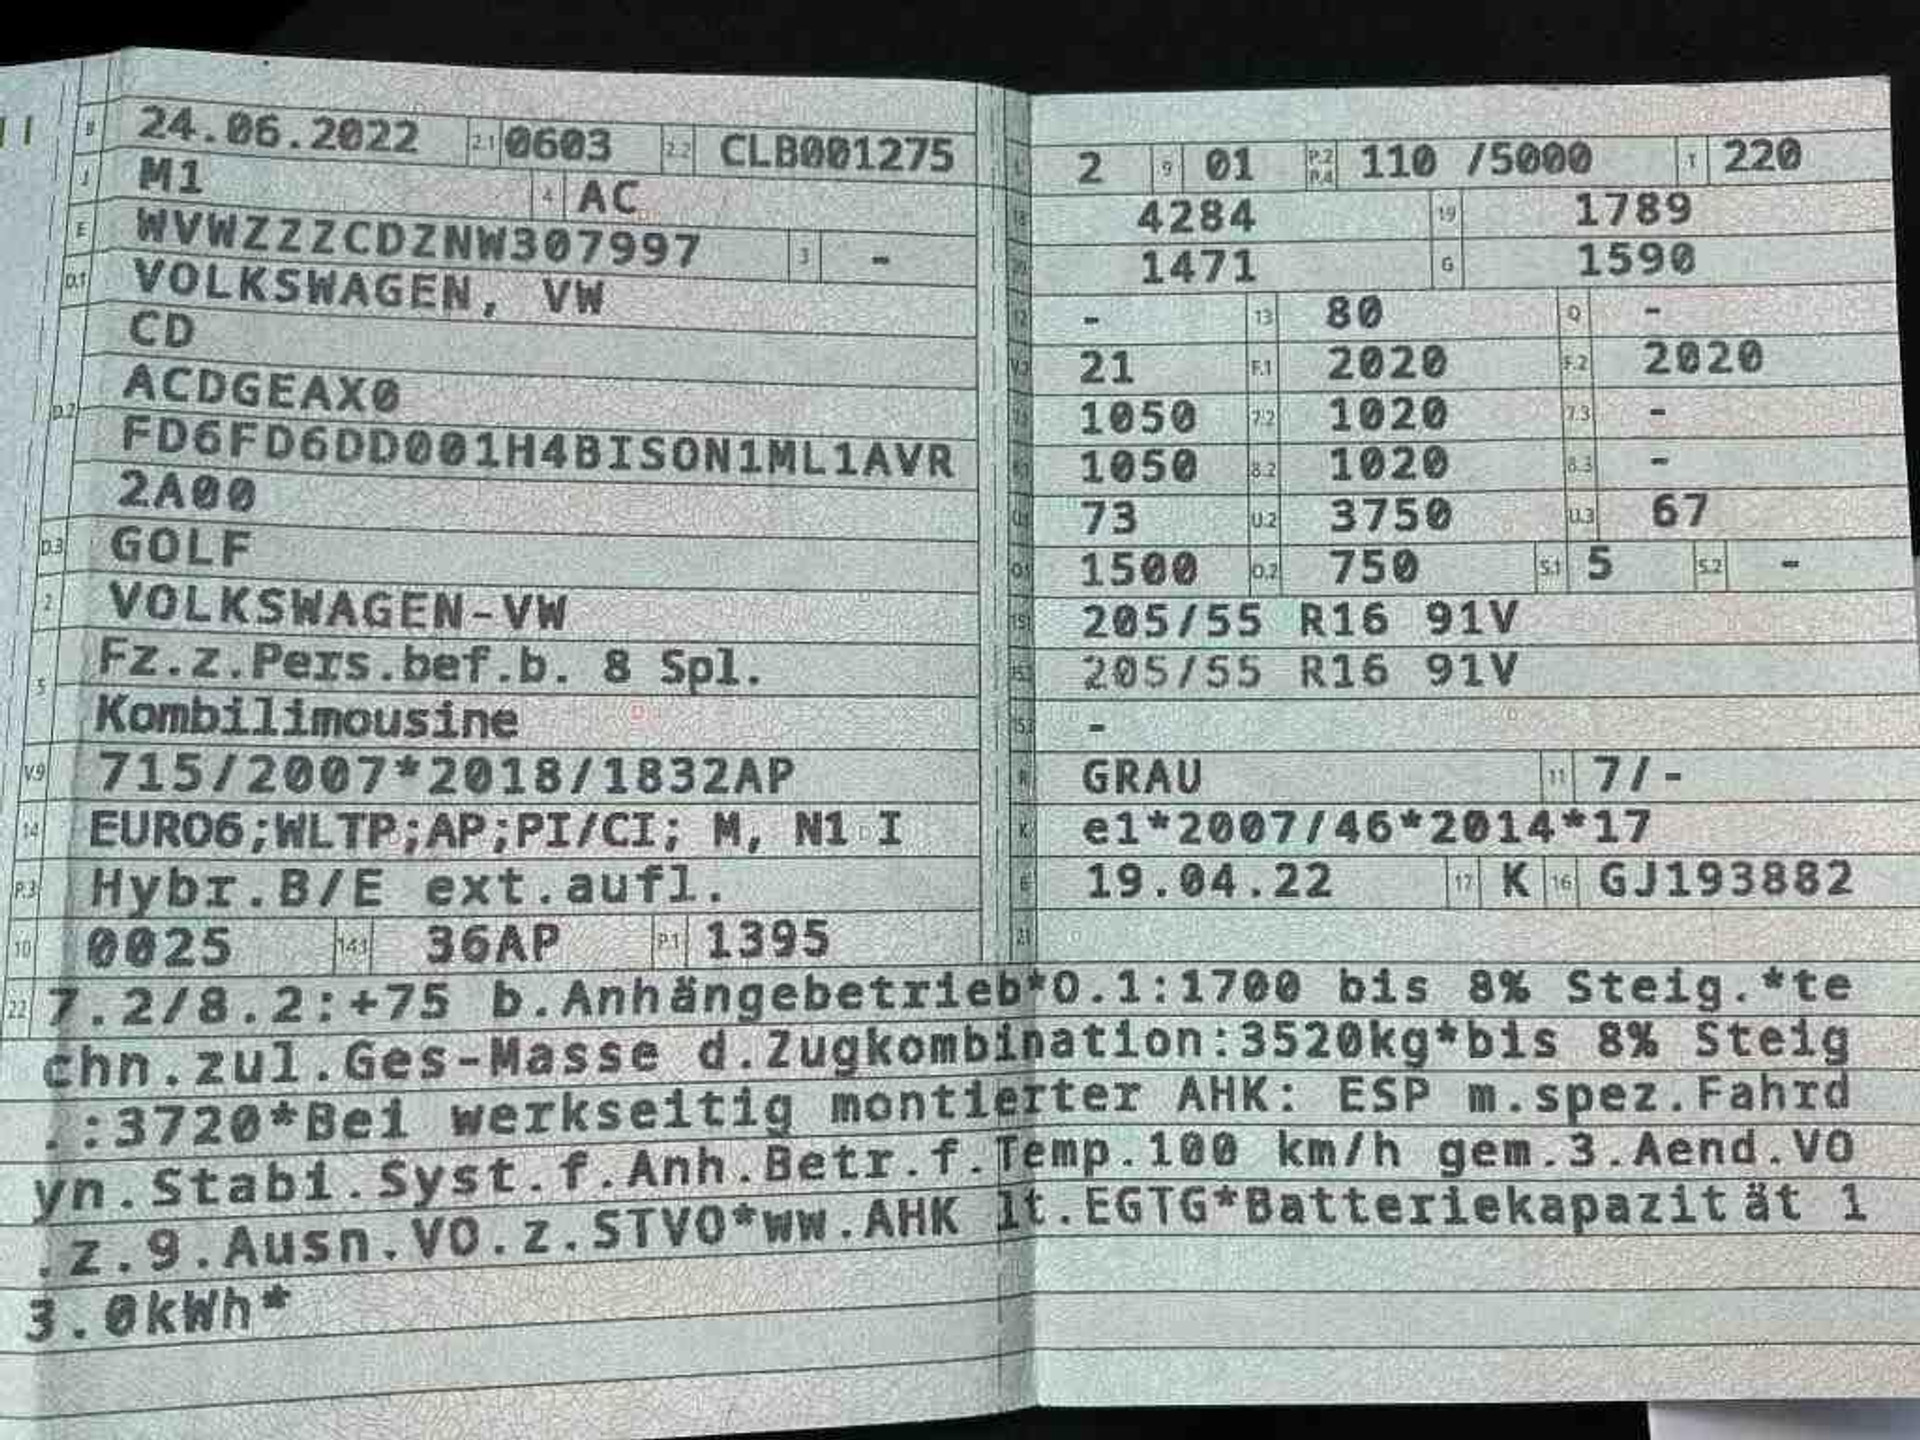 B 24.06.2022 2.1 0603 2.2 CLB001275
J M1 4 AC
E WVWZZZCDZNW307997 3 -
D.1 VOLKSWAGEN, VW
CD
D.2 ACDGEAX0
FD6FD6DD001H4BISON1ML1AVR
2A00
D.3 GOLF
2 VOLKSWAGEN-VW
5 Fz.z.Pers.bef.b. 8 Spl.
Kombilimousine
V.9 715/2007*2018/1832AP
14 EURO6;WLTP;AP;PI/CI; M, N1 I
P.3 Hybr.B/E ext.aufl.
10 0025 14.1 36AP P.1 1395
L 2 9 01 P.2 P.4 110 /5000 T 220
18 4284 19 1789
20 1471 G 1590
12 - 13 80 Q -
V.7 21 F.1 2020 F.2 2020
7.1 1050 7.2 1020 7.3 -
8.1 1050 8.2 1020 8.3 -
U.1 73 U.2 3750 U.3 67
O.1 1500 O.2 750 S.1 5 S.2 -
15.1 205/55 R16 91V
15.2 205/55 R16 91V
15.3 -
R GRAU 11 7/-
K e1*2007/46*2014*17
6 19.04.22 17 K 16 GJ193882
21
22 7.2/8.2:+75 b.Anhängebetrieb*O.1:1700 bis 8% Steig.*te
chn.zul.Ges-Masse d.Zugkombination:3520kg*bis 8% Steig
.:3720*Bei werkseitig montierter AHK: ESP m.spez.Fahrd
yn.Stabi.Syst.f.Anh.Betr.f.Temp.100 km/h gem.3.Aend.VO
.z.9.Ausn.VO.z.STVO*ww.AHK lt.EGTG*Batteriekapazität 1
3.0kWh*